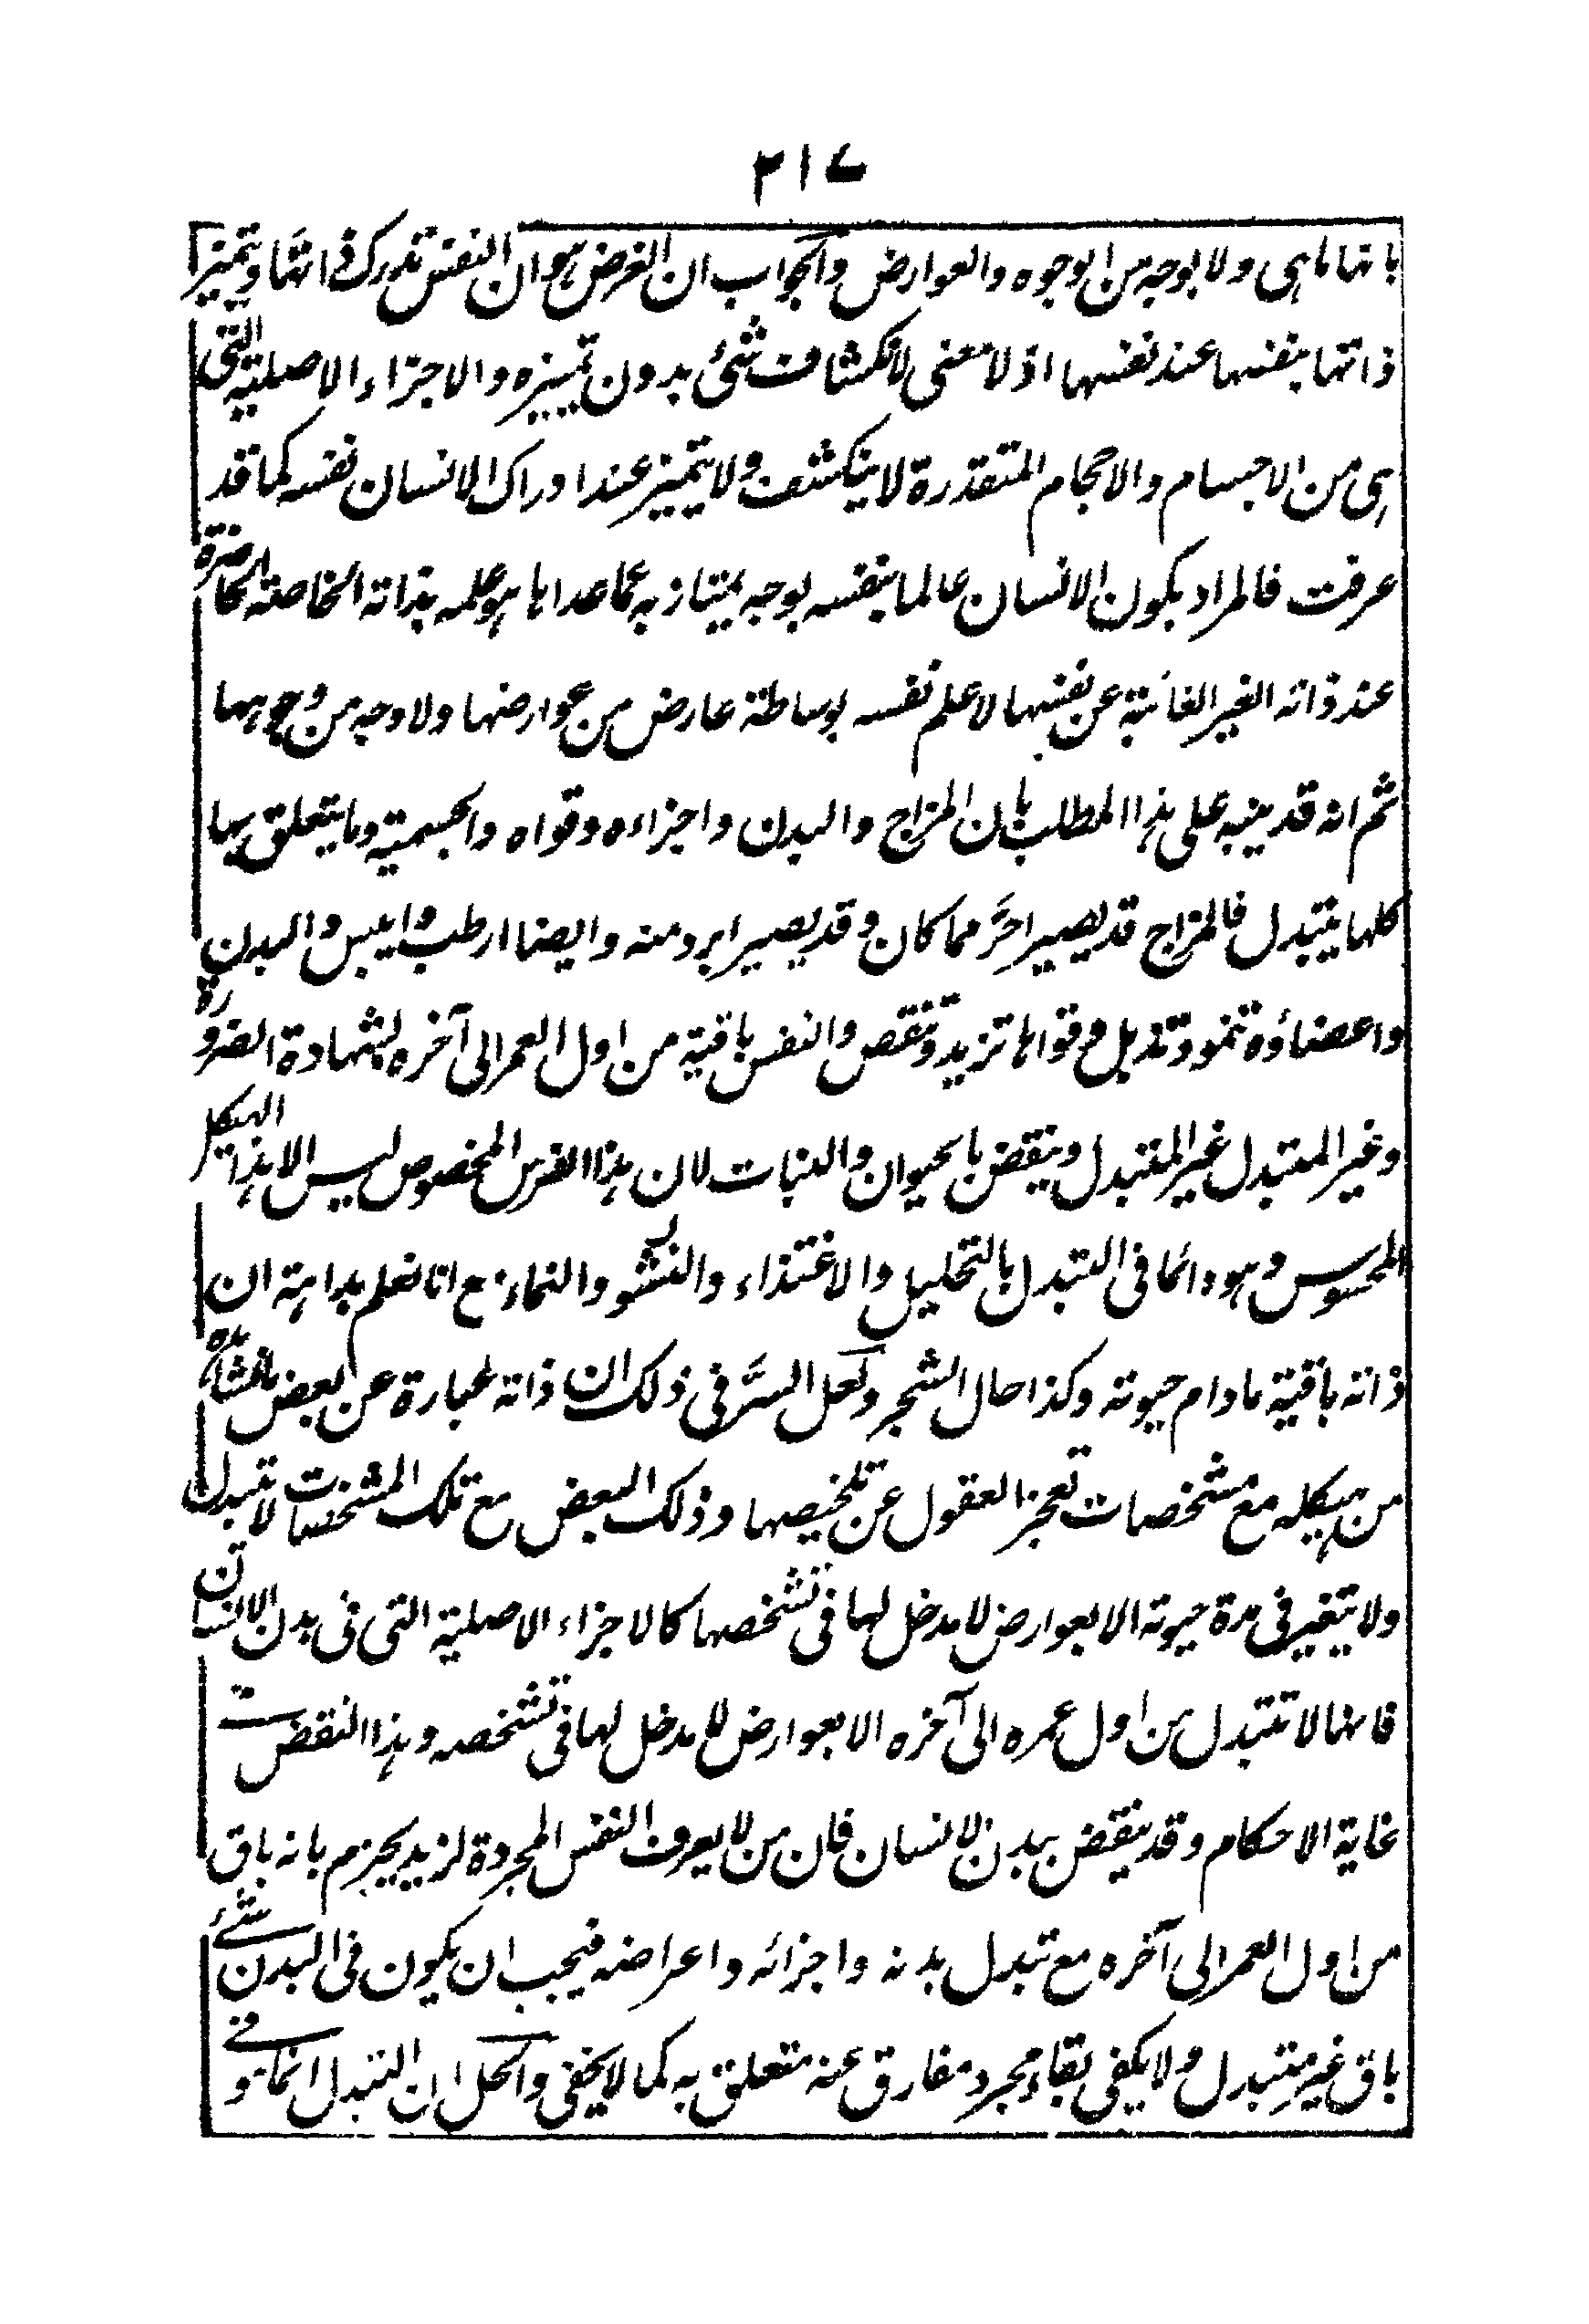 ٣١٧
بانها ماهى ولا بوجه من الوجوه والعوارض والجواب ان الغرض هو ان النفس تدرك ذاتها ويتميز
ذاتها بنفسها عند نفسها اذ لا معنى لانكشاف شئ بدون تميزه والاجزاء الاصلية التى
هى من الاجسام والاحجام المتقدرة لا ينكشف ولا يتميز عند ادراك الانسان نفسه كما قد
عرفت فالمراد بكون الانسان عالما بنفسه بوجه يمتاز به عما عداها هو علمه بذاته الخاصة الحاضرة
عند ذاته الغير الغائبة عن نفسها لا علم نفسه بوساطة عارض من عوارضها ولا وجه من وجوهها
ثم انه قد ينبه على هذا المطلب بان المزاج والبدن واجزاءه وقواه والجسمية وما يتعلق بها
كلها يتبدل فالمزاج قد يصير احرّ مما كان وقد يصير ابرد منه وايضا ارطب وايبس والبدن
واعضاؤه تنمو وتذبل وقواها تزيد وتنقص والنفس باقية من اول العمر الى آخره بشهادة الضرورة
وغير المتبدل غير المتبدل وينقض بالحيوان والنبات لان هذا الفرس المخصوص ليس الا هذا الهيكل
المحسوس وهو دائما فى التبدل بالتحليل والاغتذاء والنشو والنماء مع انا نعلم بداهة ان
ذاته باقية ما دام حيوته وكذا حال الشجر ولعل السرّ فى ذلك ان ذاته عبارة عن بعض ما نشاهده
من هيكله مع مشخصات تعجز العقول عن تلخيصها وذلك البعض مع تلك المشخصات لا تتبدل
ولا يتغير فى مدة حيوته الا بعوارض لا مدخل لها فى تشخصها كالاجزاء الاصلية التى فى بدن الانسان
فانها لا تتبدل من اول عمره الى آخره الا بعوارض لا مدخل لها فى تشخصه وهذا النقض
غاية الاحكام وقد ينقض ببدن الانسان فان من لا يعرف النفس المجردة لزيد يجزم بانه باق
من اول العمر الى آخره مع تبدل بدنه واجزائه واعراضه فيجب ان يكون فى البدن شئ
باق غير متبدل ولا يكفى بقاء مجرد مفارق عنه متعلق به كما لا يخفى والحل ان التبدل انما هو فى